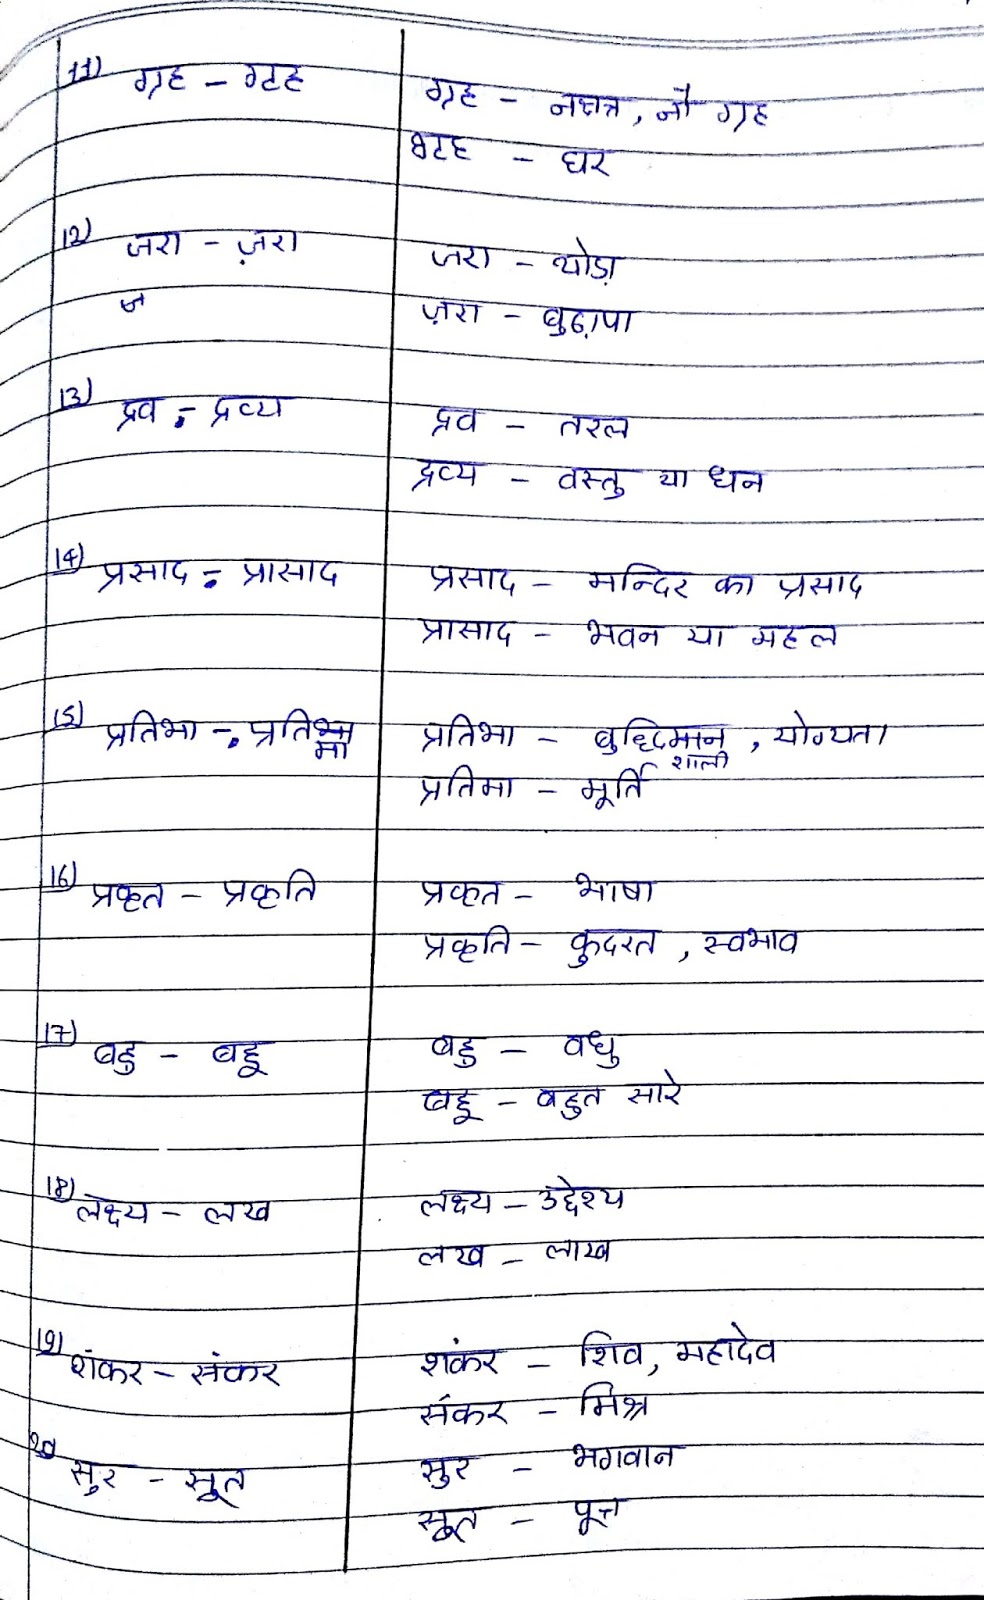 11) ग्रह - गृह
ग्रह - नक्षत्र, नौ ग्रह
गृह - घर
12) जरा - ज़रा
जरा - थोड़ा
ज
ज़रा - बुढ़ापा
13) द्रव - द्रव्य
द्रव - तरल
द्रव्य - वस्तु या धन
14) प्रसाद - प्रासाद
प्रसाद - मन्दिर का प्रसाद
प्रासाद - भवन या महल
15) प्रतिभा - प्रतिमा
प्रतिभा - बुद्धिमान, योग्यता
शाली
प्रतिमा - मूर्ति
16) प्रकृत - प्रकृति
प्रकृत - भाषा
प्रकृति - कुदरत, स्वभाव
17) बहु - बहू
बहु - वधु
बहू - बहुत सारे
18) लक्ष्य - लख
लक्ष्य - उद्देश्य
लख - लाख
19) शंकर - संकर
शंकर - शिव, महादेव
संकर - मिश्र
20) सुर - सूत
सुर - भगवान
सूत - पूत्र